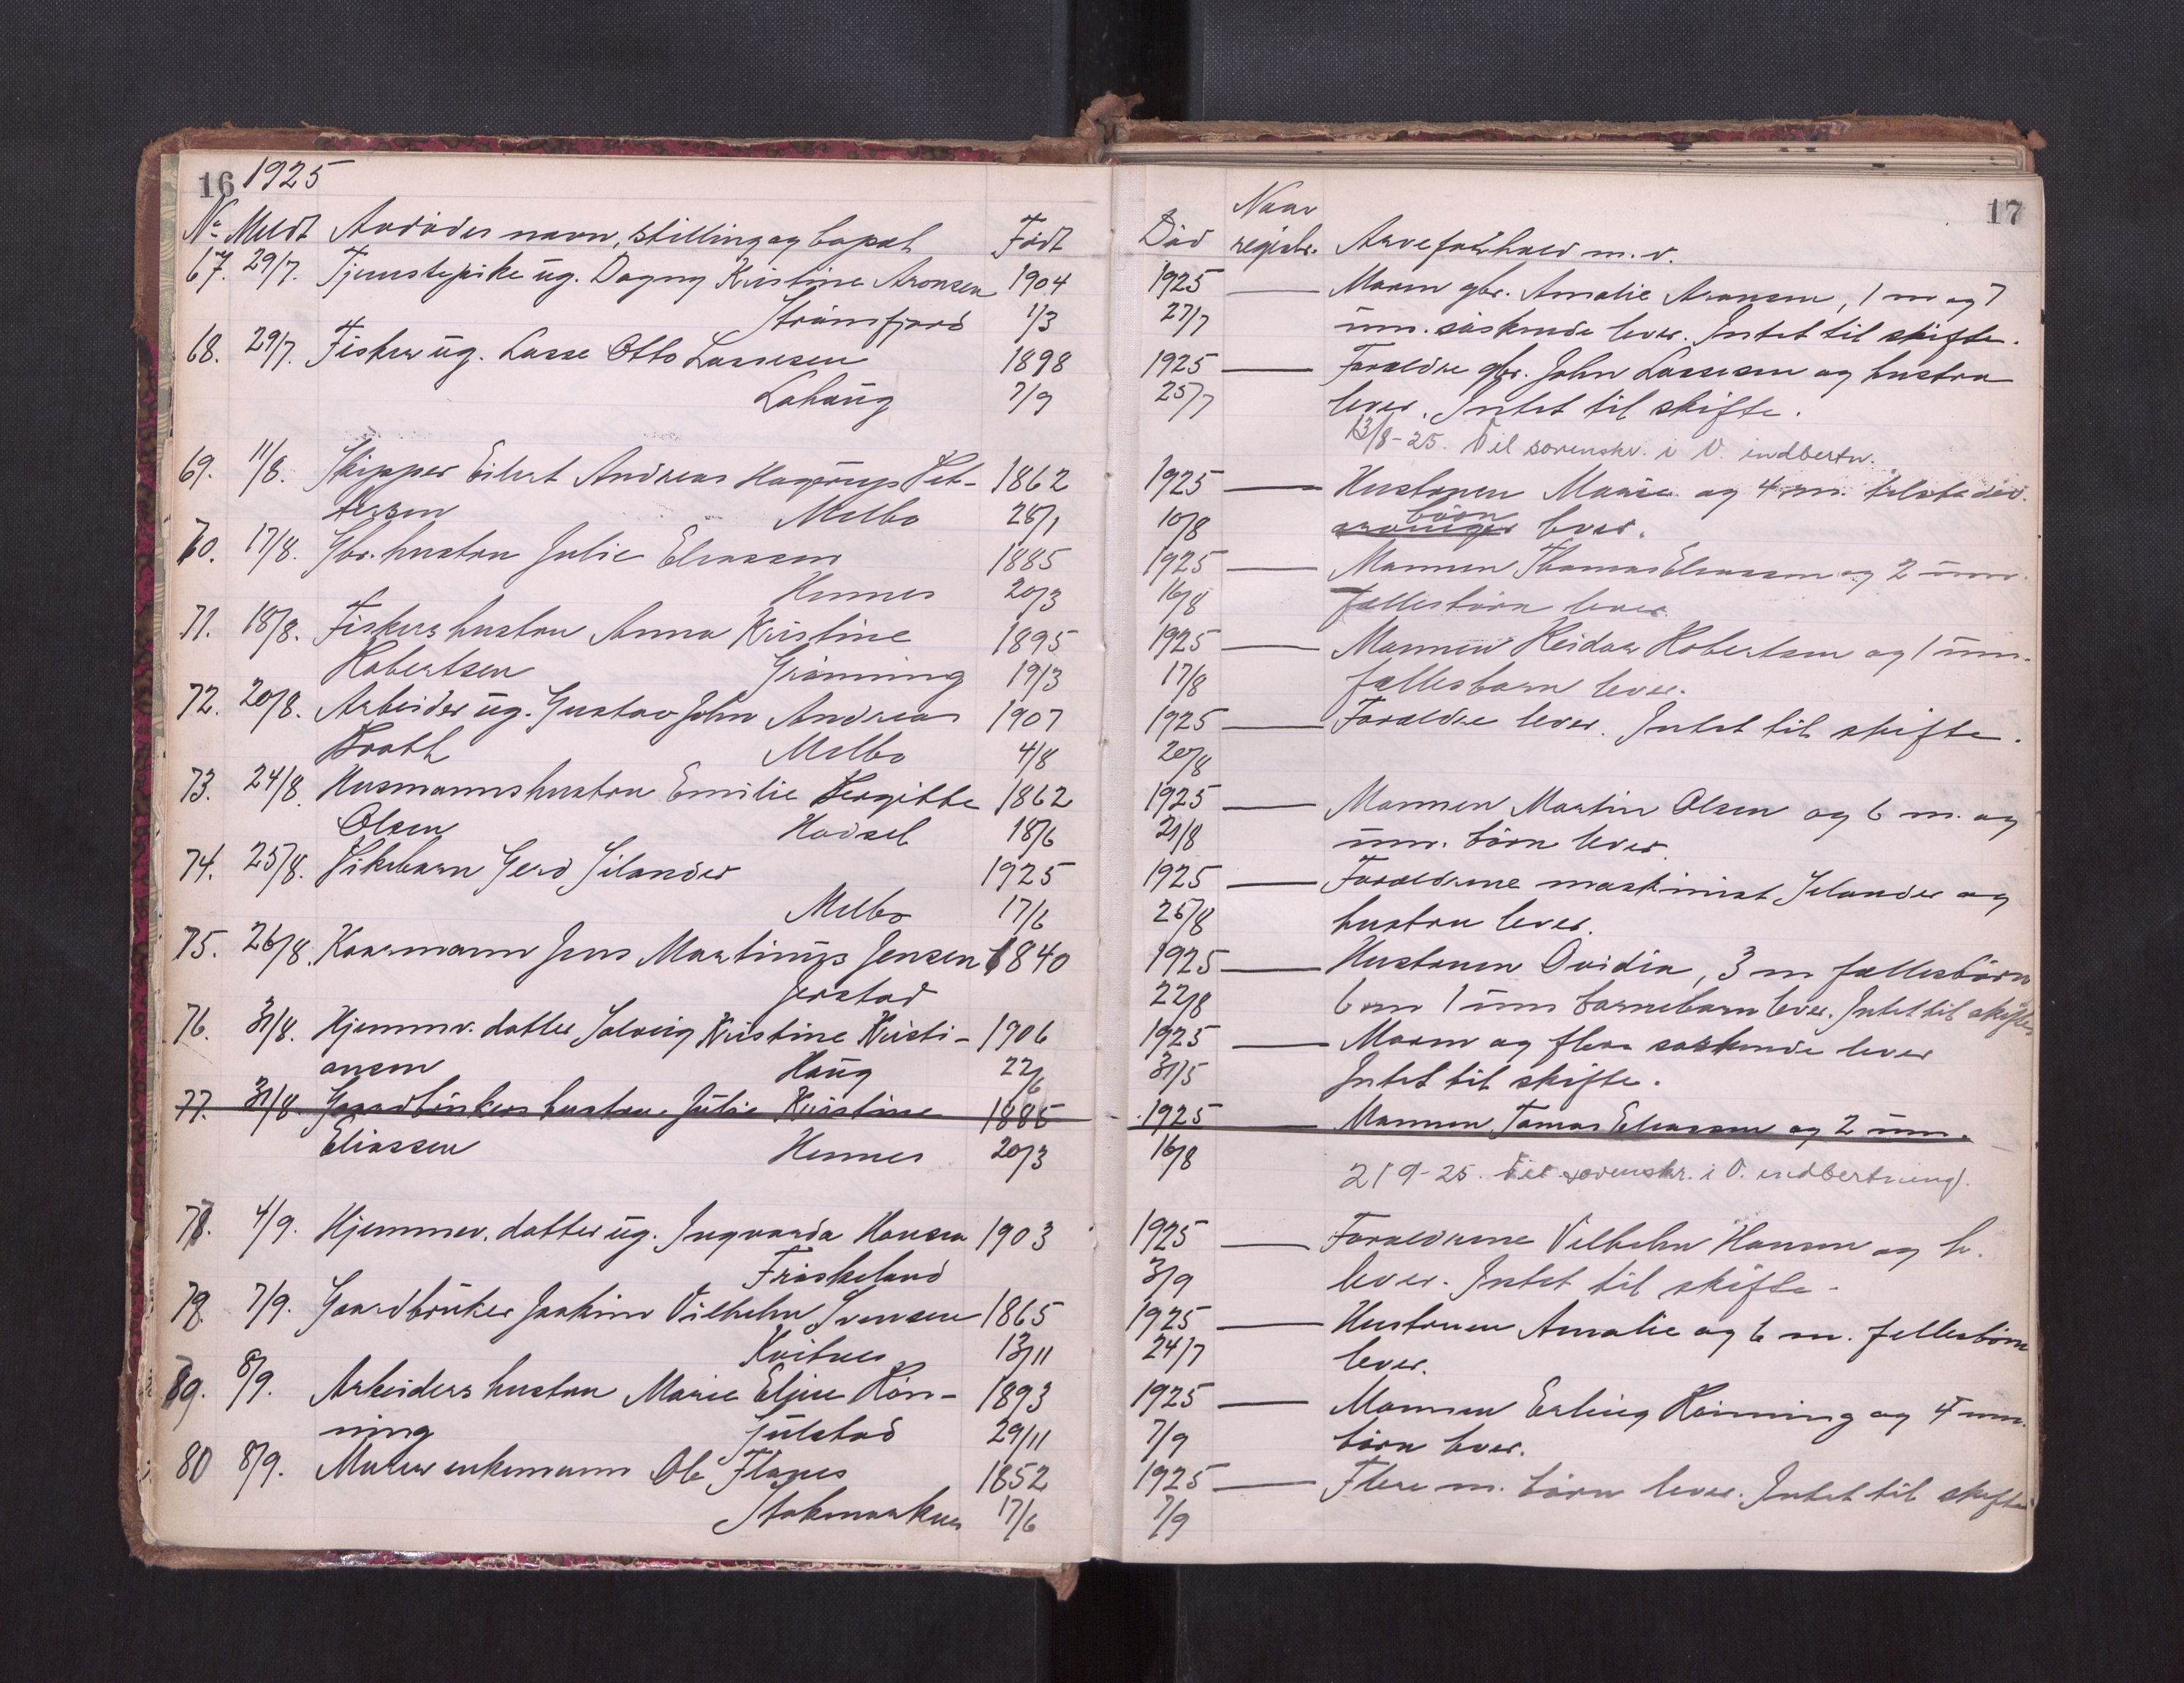 16 1925
No. Meldt Avdødes navn, stilling og bopæl Født
67. 29/7. Tjenestepike ug. Dagny Kristine Aronsen 1904
Strømfjord 1/3
68. 29/7. Fisker ug. Lasse Otto Lassesen 1898
Lahaug 7/9
69. 11/8. Skipper Eilert Andreas Hagerup Pet- 1862
tersen Melbo 28/1
70. 17/8. Gbr. hustru Julie Eliassen 1885
Hennes 20/3
71. 18/8. Fiskers hustru Anna Kristine 1895
Robertsen Grønning 19/3
72. 20/8. Arbeider ug. Gustav John Andreas 1907
Melbo 4/8
73. 24/8. Husmannshustru Emilie Bergitte 1862
Olsen Hadsel 18/6
74. 25/8. Pikebarn Gerd Jilander 1925
Melbo 17/6
75. 26/8. Kaarmann Jens Martinus Jensen 1840
Jerstad
76. 31/8. Hjemmev. datter Solveig Kristine Kristi- 1906
ansen Haug 22/6
77. 31/8. Gaardbrukers hustru Julie Kristine 1885
Eliassen Hennes 20/3
78. 4/9. Hjemmev. datter ug. Ingvarda Hansen 1903
Frøskeland
79. 7/9. Gaardbruker Joakim Vilhelm Svensen 1865
Kvitnes 13/11
89. 8/9. Arbeiders hustru Marie Eline Røn- 1893
ning Julstad 29/11
80 8/9. Murer enkemann Ole 1852
Stokmarknes 17/6
17
Naar
Død registr. Arveforhold m.v.
1925 Moren gbr. Amalie Aronsen, 1 m og 7
27/7 um. søskende lever. Intet til skifte.
1925 Forældre gbr. John Lassesen og hustru
25/7 lever. Intet til skifte.
13/8-25. Til sorenskr. i V. indbertn.
1925 Hustruen Marie og 4 m.
børn
10/8 arvinger lever.
1925 Mannen Thomas Eliassen og 2 um.
16/8 fællesbørn lever.
1925 Mannen Reidar Robertsen og 1 um.
17/8 fællesbarn lever.
1925 Forældre lever. Intet til skifte.
20/8
1925 Mannen Martin Olsen og 6 m. og
21/8 um. børn lever.
1925 Forældrene maskinist Jilander og
25/8 hustru lever.
1925 Hustruen Ovidia, 3 m fællesbørn
22/8 6 m 1 um barnebarn lever. Intet til skifte
1925 Moren og flere søskende lever
31/5 Intet til skifte.
1925 Mannen Tomas Eliassen og 2 um.
16/8
2/9-25. Til sorenskr. i V. indbertning.
1925 Forældrene Vilhelm Hansen og h.
3/9 lever. Intet til skifte.
1925 Hustruen Amalie og 6 m. fellesbørn
24/7 lever.
1925 Mannen Erling Rønning og 4 um.
7/9 børn lever.
1925 Flere m. børn lever. Intet til skifte
7/9